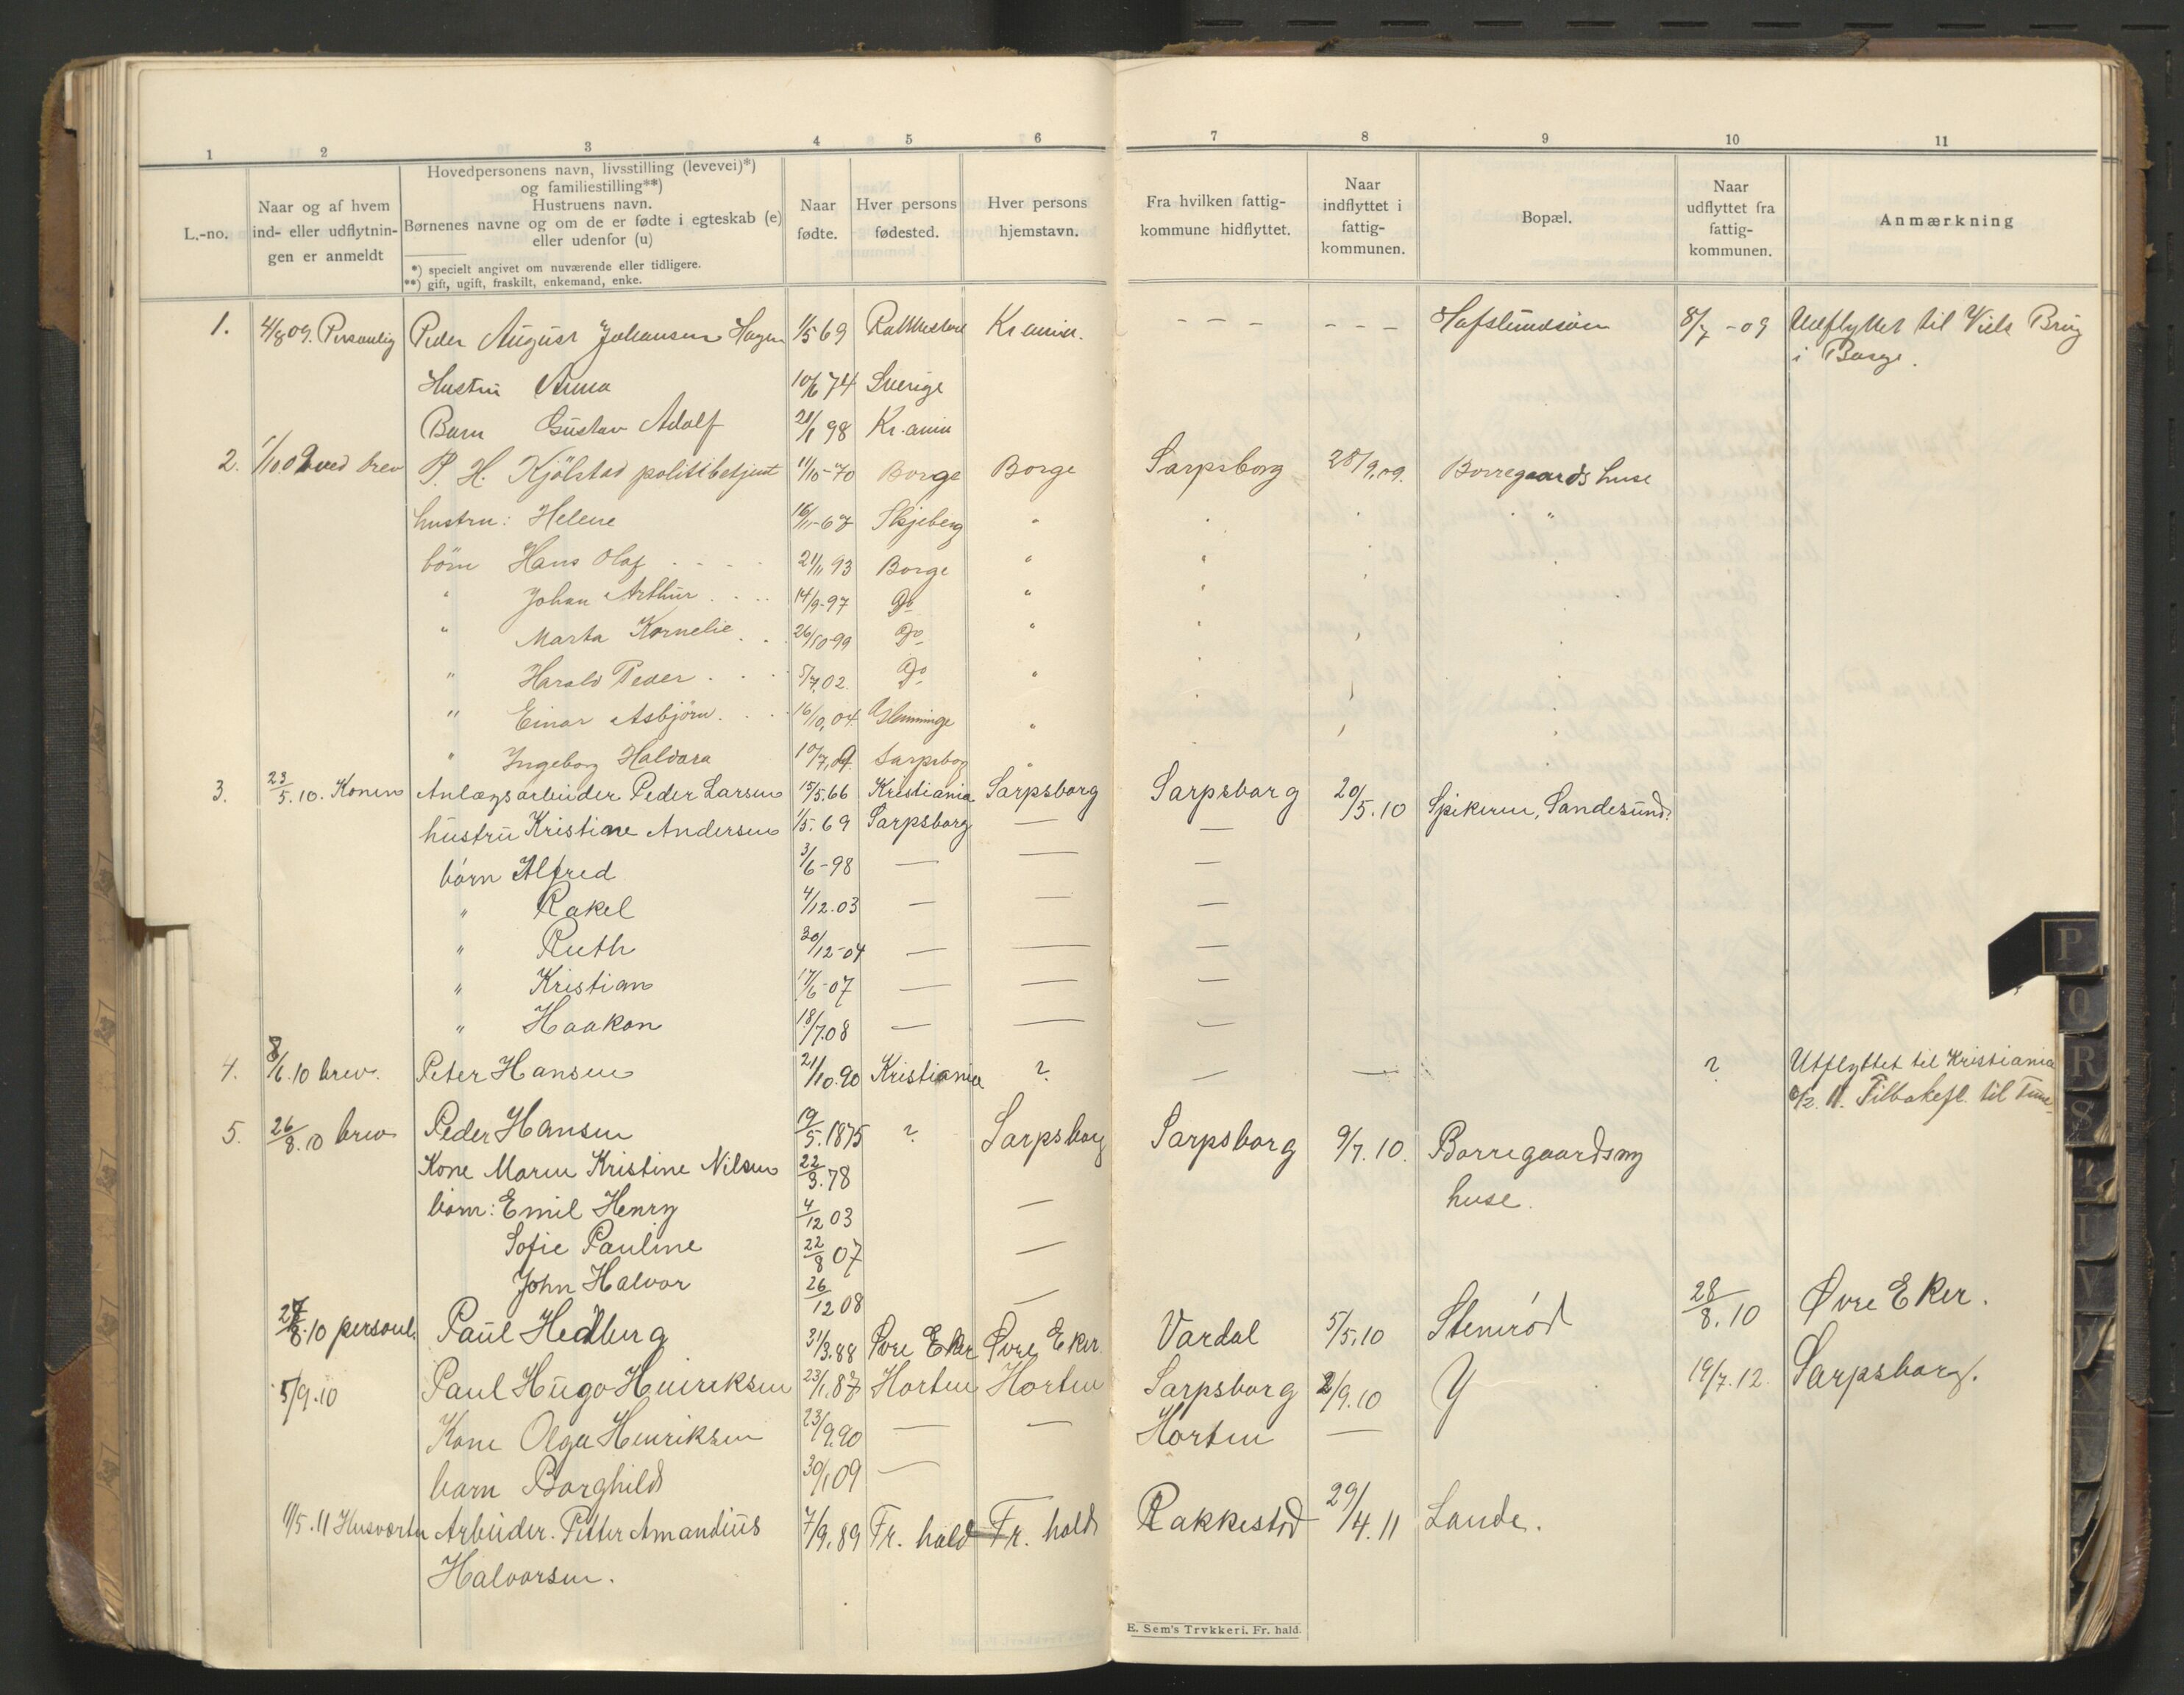 1 2 3 4 5 6 7 8 9 10 11
L.-no.
Naar og af hvem
ind- eller udflytnin-
gen er anmeldt
Hovedpersonens navn, livsstilling (levevei)*)
og familiestilling**)
Hustruens navn.
Børnenes navne og om de er fødte i egteskab (e)
eller udenfor (u)
*) specielt angivet om nuværende eller tidligere.
**) gift, ugift, fraskilt, enkemand, enke.
Naar
fødte.
Hver persons
fødested.
Hver persons
hjemstavn.
Fra hvilken fattig-
kommune hidflyttet.
Naar
indflyttet i
fattig-
kommunen.
Bopæl.
Naar
udflyttet fra
fattig-
kommunen.
Anmærkning
1. 4/8 09. Personlig Peder August Johansen Hagen 1/5 69 Kr.ania. - - - - - - Hafslundsøen 8/7 -09 Udflyttet til Visls Brug
i Borge.
Hustru Anna 10/6 74 Sverige
Barn Gustav Adolf 21/1 98 Kr.ania
2. 1/10 09 ved brev P. H. Kjölstad politibetjent 11/10-70 Borge Borge Sarpsborg 28/9,09. Borregaards huse
hustru: Helene 16/11-67 Skjeberg " " " "
börn Hans Olaf . . . . 21/11 93 Borge " "
" Johan Arthur . . . 14/9-97 Do " "
" Marta Kornelie . . 26/10-99 Do " "
" Harald Peder . . . 5/7,02. Do " "
" Einar Asbjörn . . . 16/10,04. Glemminge " "
" Ingeborg Haldora 10/7,09. Sarpsborg "
3. 23/5.10. Konen Anlægsarbeider Peder Larsen 15/5.66 Kristiania Sarpsborg Sarpsborg 20/5.10 Spikeren, Sandesund.
hustru Kristine Andersen 1/5.69 Sarpsborg — —
börn Alfred 3/6-98 — — —
" Rakel 4/12.03 — — —
" Ruth 30/12-04 — — —
" Kristian 17/6-07 — — —
" Haakon 18/7.08 — — —
4. 8/6.10 brev. Peter Hansen 21/10.90 Kristiania ? — — ? Utflyttet til Kristiania
6/2.11. Tilbakefl. til Tune.
5. 26/8.10 brev Peder Hansen 19/5.1875 ? Sarpsborg Sarpsborg 9/7.10. Borregaardsny
huse.
Kone Maren Kristine Nilsen 22/3.78
börn: Emil Henry 4/12 03 —
Sofie Pauline 22/8 07 —
John Halvor 26/12 08 —
27/8.10 personl. Paul Hedberg 31/3.88 Øvre Eker Øvre Eker Vardal 5/5.10 Stenrød 28/8.10 Øvre Eker.
5/9.10 Paul Hugo Henriksen 23/1.87 Horten Horten Sarpsborg 2/9.10 Y 19/7.12. Sarpsborg.
Kone Olga Henriksen 23/9.90 — — Horten —
barn Borghild 30/1 09 —
11/5.11 Husverten Arbeider. Petter Amandius 7/9.89 Fr. hald Fr. hald Rakkestad 29/4.11 Lande.
Halvorsen.
E. Sem's Trykkeri. Fr. hald.
P
Q
R
S
T
V
X
Y